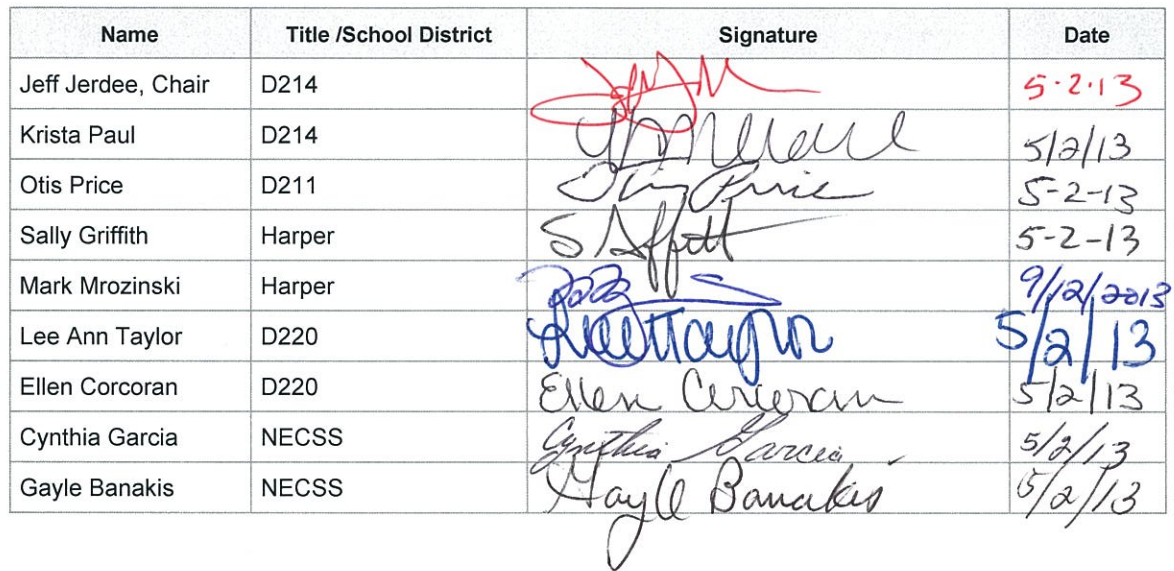 Name Title /School District Signature Date
Jeff Jerdee, Chair D214 5-2-13
Krista Paul D214 5/2/13
Otis Price D211 Otis Price 5-2-13
Sally Griffith Harper 5-2-13
Mark Mrozinski Harper 9/12/2013
Lee Ann Taylor D220 5/2/13
Ellen Corcoran D220 Ellen Corcoran 5/2/13
Cynthia Garcia NECSS Cynthia Garcia 5/2/13
Gayle Banakis NECSS Gayle Banakis 5/2/13